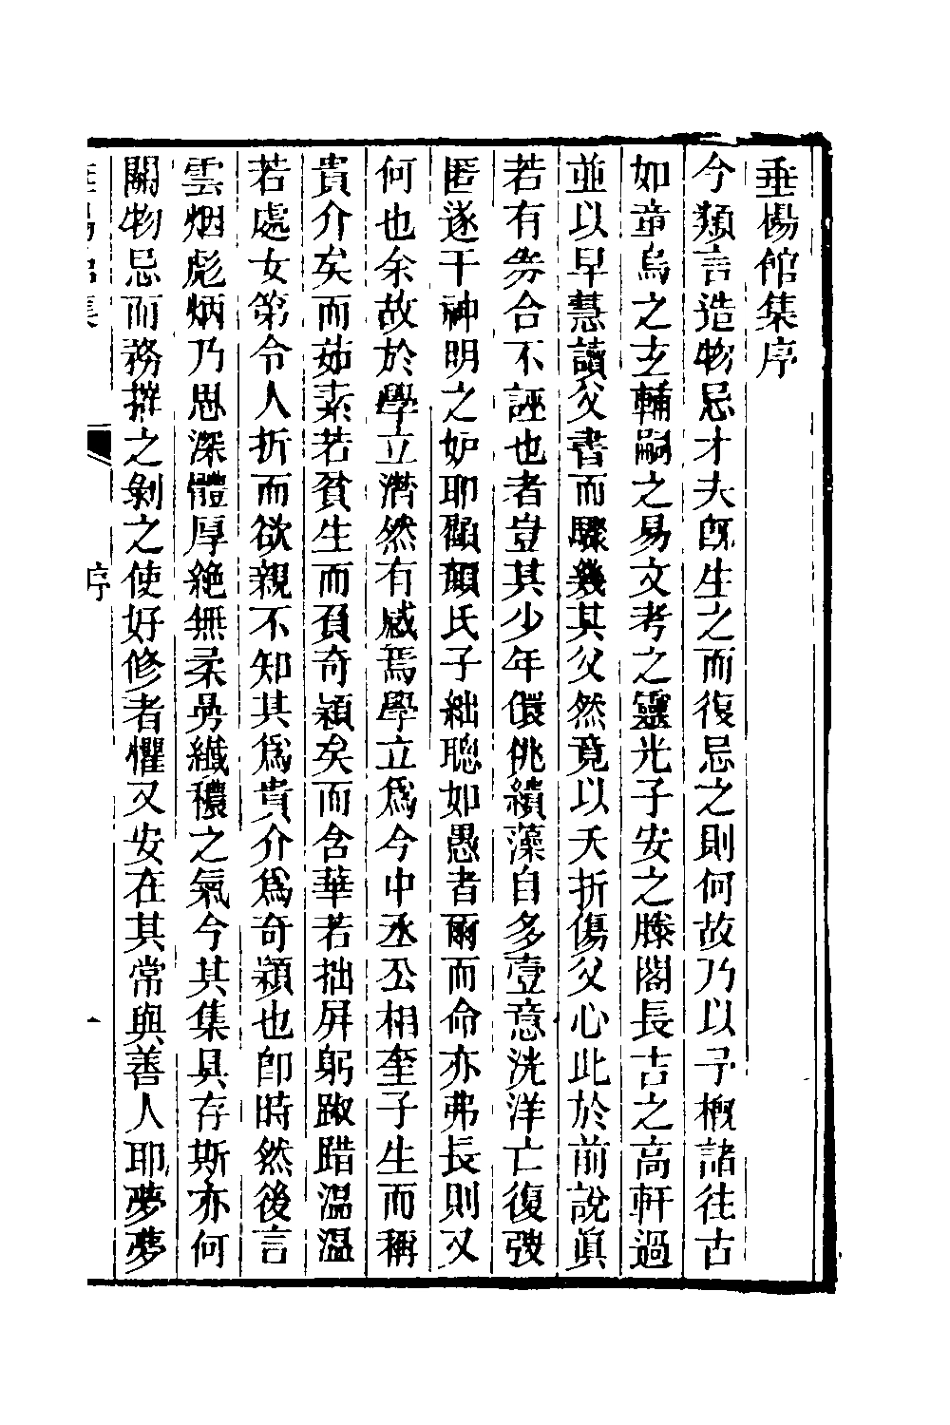 垂楊館集序
今類言造物忌才夫既生之而復忌之則何故乃以予槪諸往古
如童烏之玄輔嗣之易文考之靈光子安之滕閣長吉之高軒過
並以早慧讀父書而驟幾其父然竟以夭折傷父心此於前說眞
若有劵合不誣也者豈其少年儇佻繢藻自多壹意洸洋亡復弢
匿遂干神明之妒耶顧顏氏子絀聰如愚者爾而命亦弗長則又
何也余故於學立潸然有感焉學立爲今中丞公相奎子生而稱
貴介矣而茹素若貧生而負奇穎矣而含華若拙屛躬踧踖溫溫
若處女第令人折而欲親不知其爲貴介爲奇穎也卽時然後言
雲烟彪炳乃思深體厚絶無柔曼纖穠之氣今其集具存斯亦何
關物忌而務摧之剝之使好修者懼又安在其常與善人耶夢夢
垂楊館集
序
一